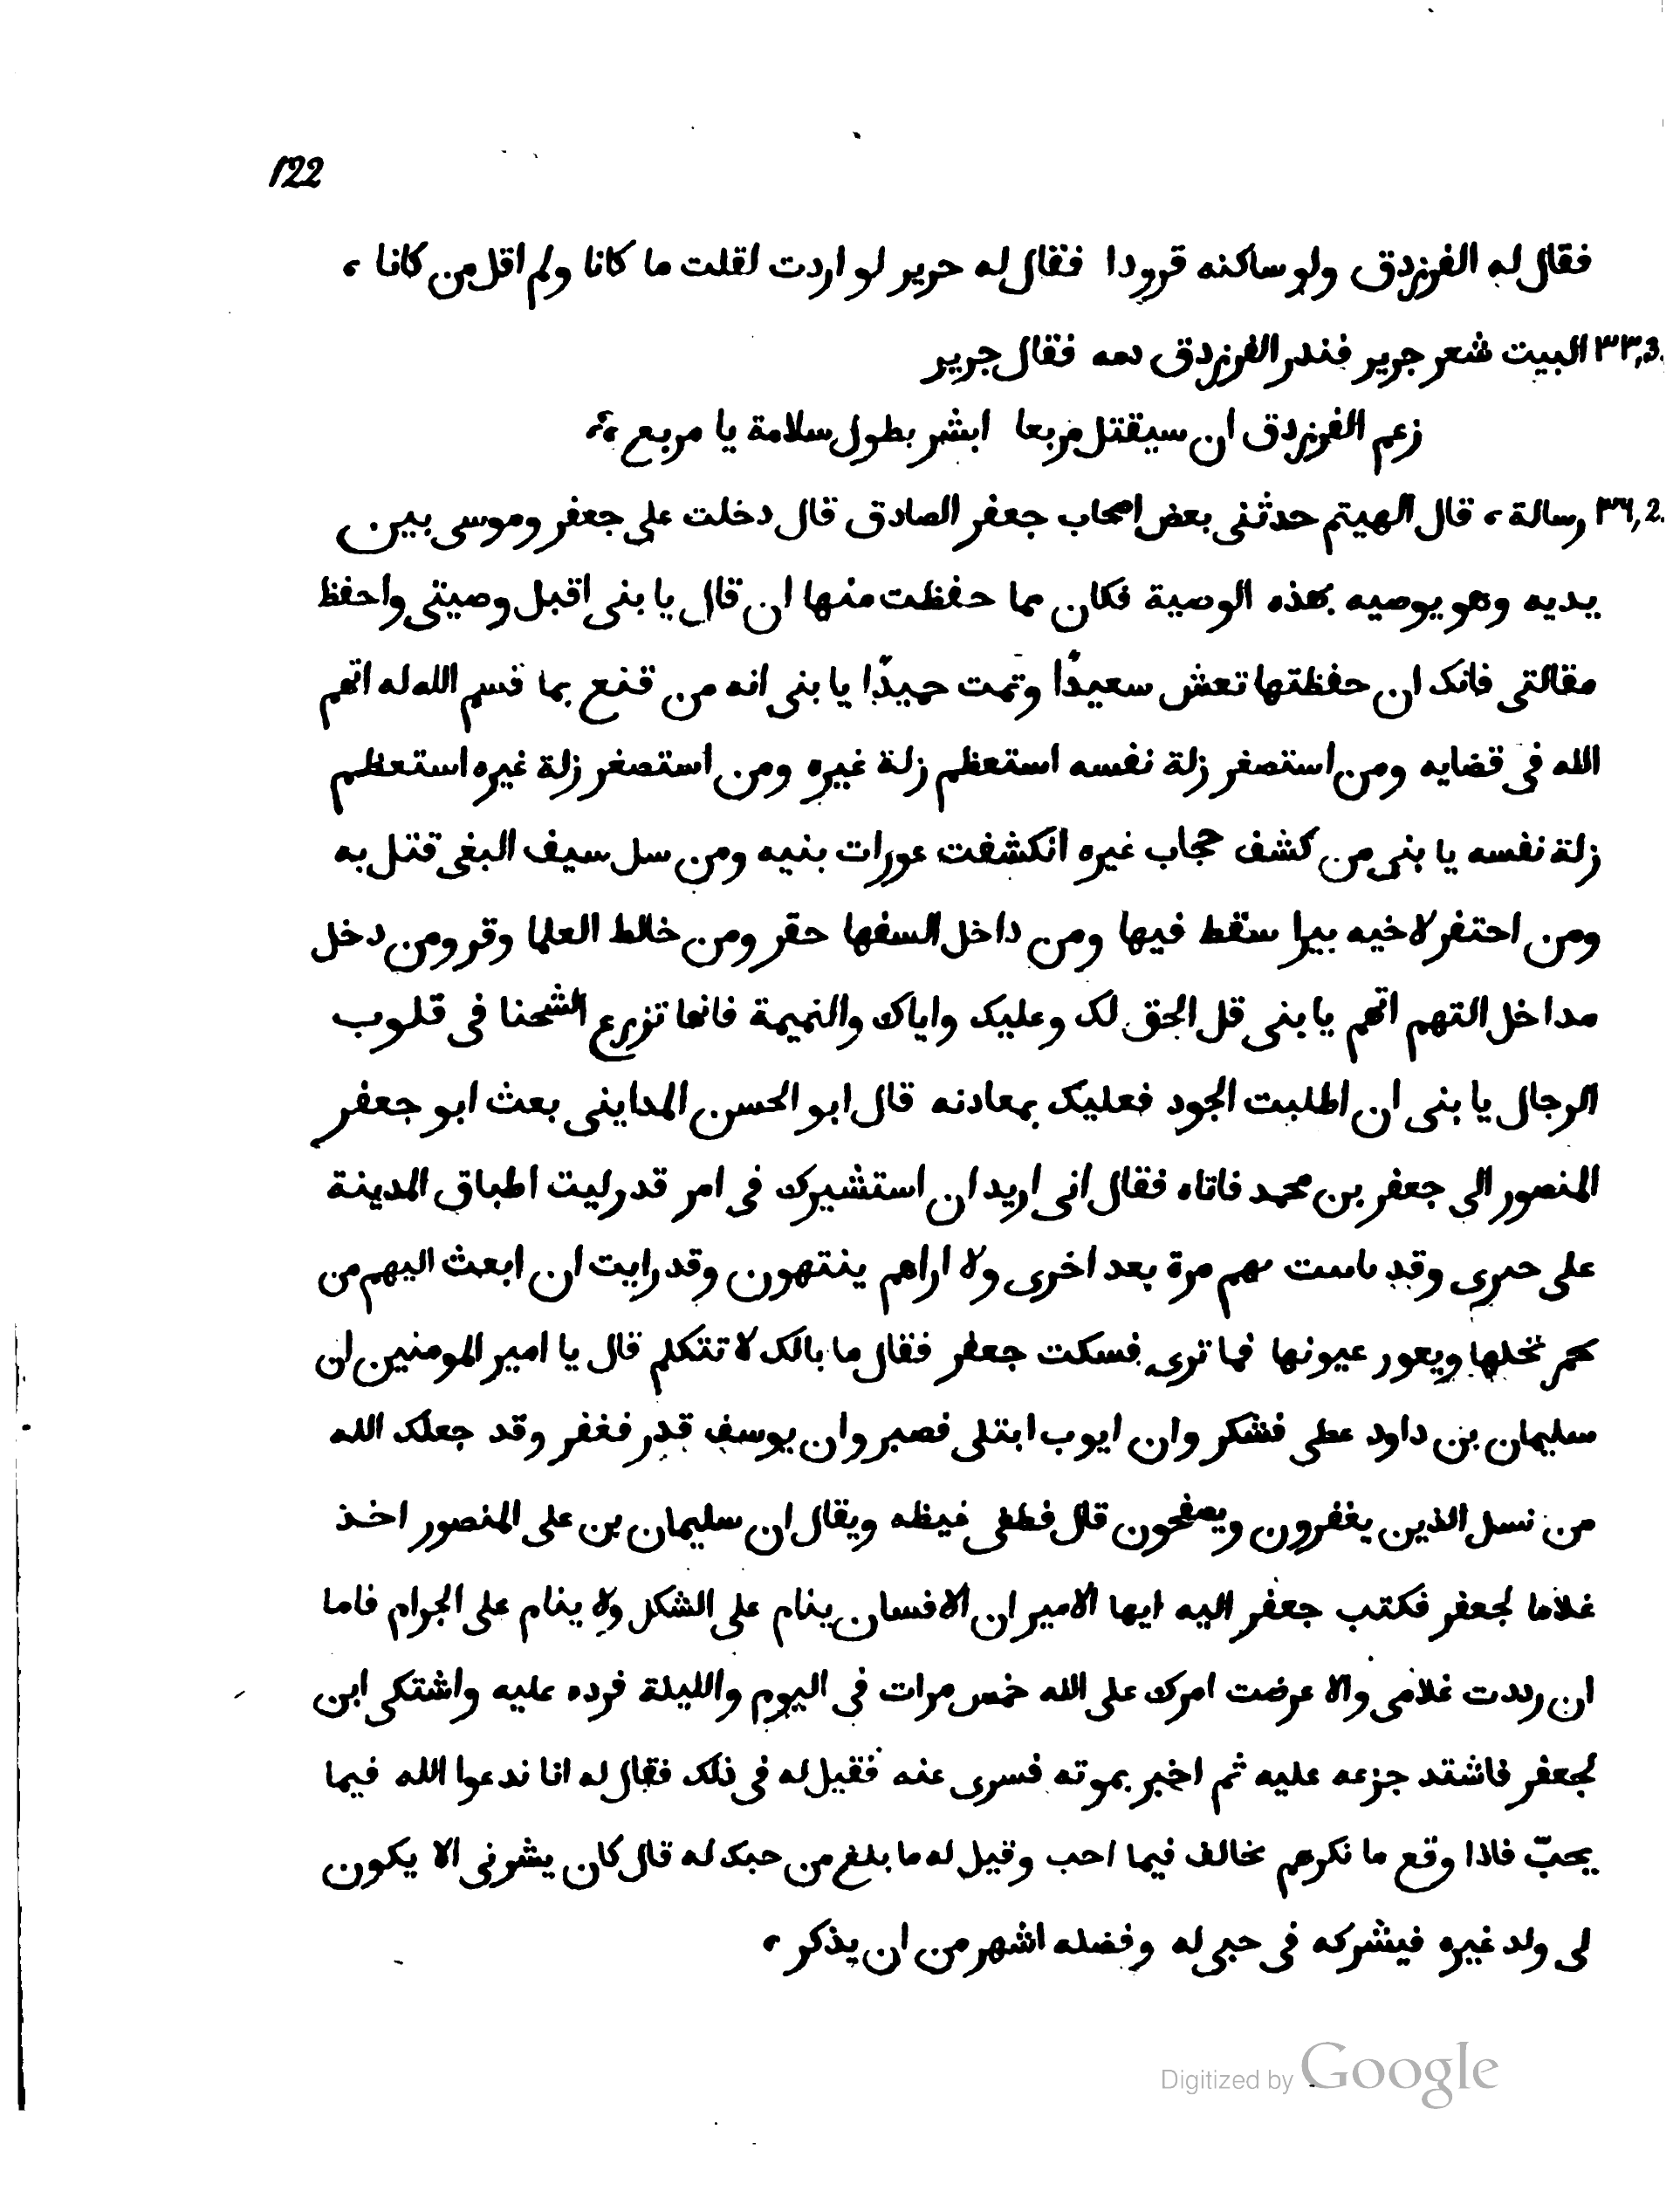 122
فقال له الفرزدق ولو ساكنه قرودا فقال له حرير لو اردت لقلت ما كانا ولم اقل من كانا ،
٣٣,3. البيت شعر جرير فندر الفرزدق دمه فقال جرير
زعم الفرزدق ان سيقتل مربعا ابشر بطول سلامة يا مربع ،
٣٦,2. رسالة ، قال الهيتم حدثنى بعض اصحاب جعفر الصادق قال دخلت على جعفر وموسى بين
يديه وهو يوصيه بهذه الوصية فكان مما حفظت منها ان قال يا بنى اقبل وصيتى واحفظ
مقالتى فانك ان حفظتها تعش سعيدًا وتمت حميدًا يا بنى انه من قنع بما قسم الله له اتهم
الله فى قضايه ومن استصغر زلة نفسه استعظم زلة غيره ومن استصغر زلة غيره استعظم
زلة نفسه يا بنى من كشف حجاب غيره انكشفت عورات بنيه ومن سل سيف البغى قتل به
ومن احتفر لاخيه بيرا سقط فيها ومن داخل السفها حقر ومن خالط العلما وقر ومن دخل
مداخل التهم اتهم يا بنى قل الحق لك وعليك واياك والنميمة فانها تزرع الشحنا فى قلوب
الرجال يا بنى ان اطلبت الجود فعليك بمعادنه قال ابو الحسن المداينى بعث ابو جعفر
المنصور الى جعفر بن محمد فاتاه فقال انى اريد ان استشيرك فى امر قد رليت اطباق المدينة
على حبرى وقد بهم مرة بعد اخرى ولا اراهم ينتهون وقد رايت ان ابعث اليهم من
نخلها ويعور عيونها فما ترى فسكت جعفر فقال ما بالك لا تتكلم قال يا امير المومنين ان
سليمان بن داود عطى فشكر وان ايوب ابتلى فصبر وان يوسف قدر فغفر وقد جعلك الله
من نسل الذين يغفرون ويصفحون قال فطفى غيظه ويقال ان سليمان بن على المنصور اخذ
غلاما لجعفر فكتب جعفر اليه ايها الامير ان الانسان ينام على الشكل ولا ينام على الجرام فاما
ان رددت غلامى والا عرضت امرك على الله خمس مرات فى اليوم والليلة فرده عليه واشتكى ابن
لجعفر فاشتد جزعه عليه ثم اخبر بموته فسرى عنه فقيل له فى ذلك فقال له انا ندعوا الله فيما
يحبّ فاذا وقع ما نكرهم نخالف فيما احب وقيل له ما بلغ من حبك له قال كان يشرنى الا يكون
لى ولد غيره فيشركه فى حبى له وفضله اشهر من ان يذكر ،
Digitized by Google